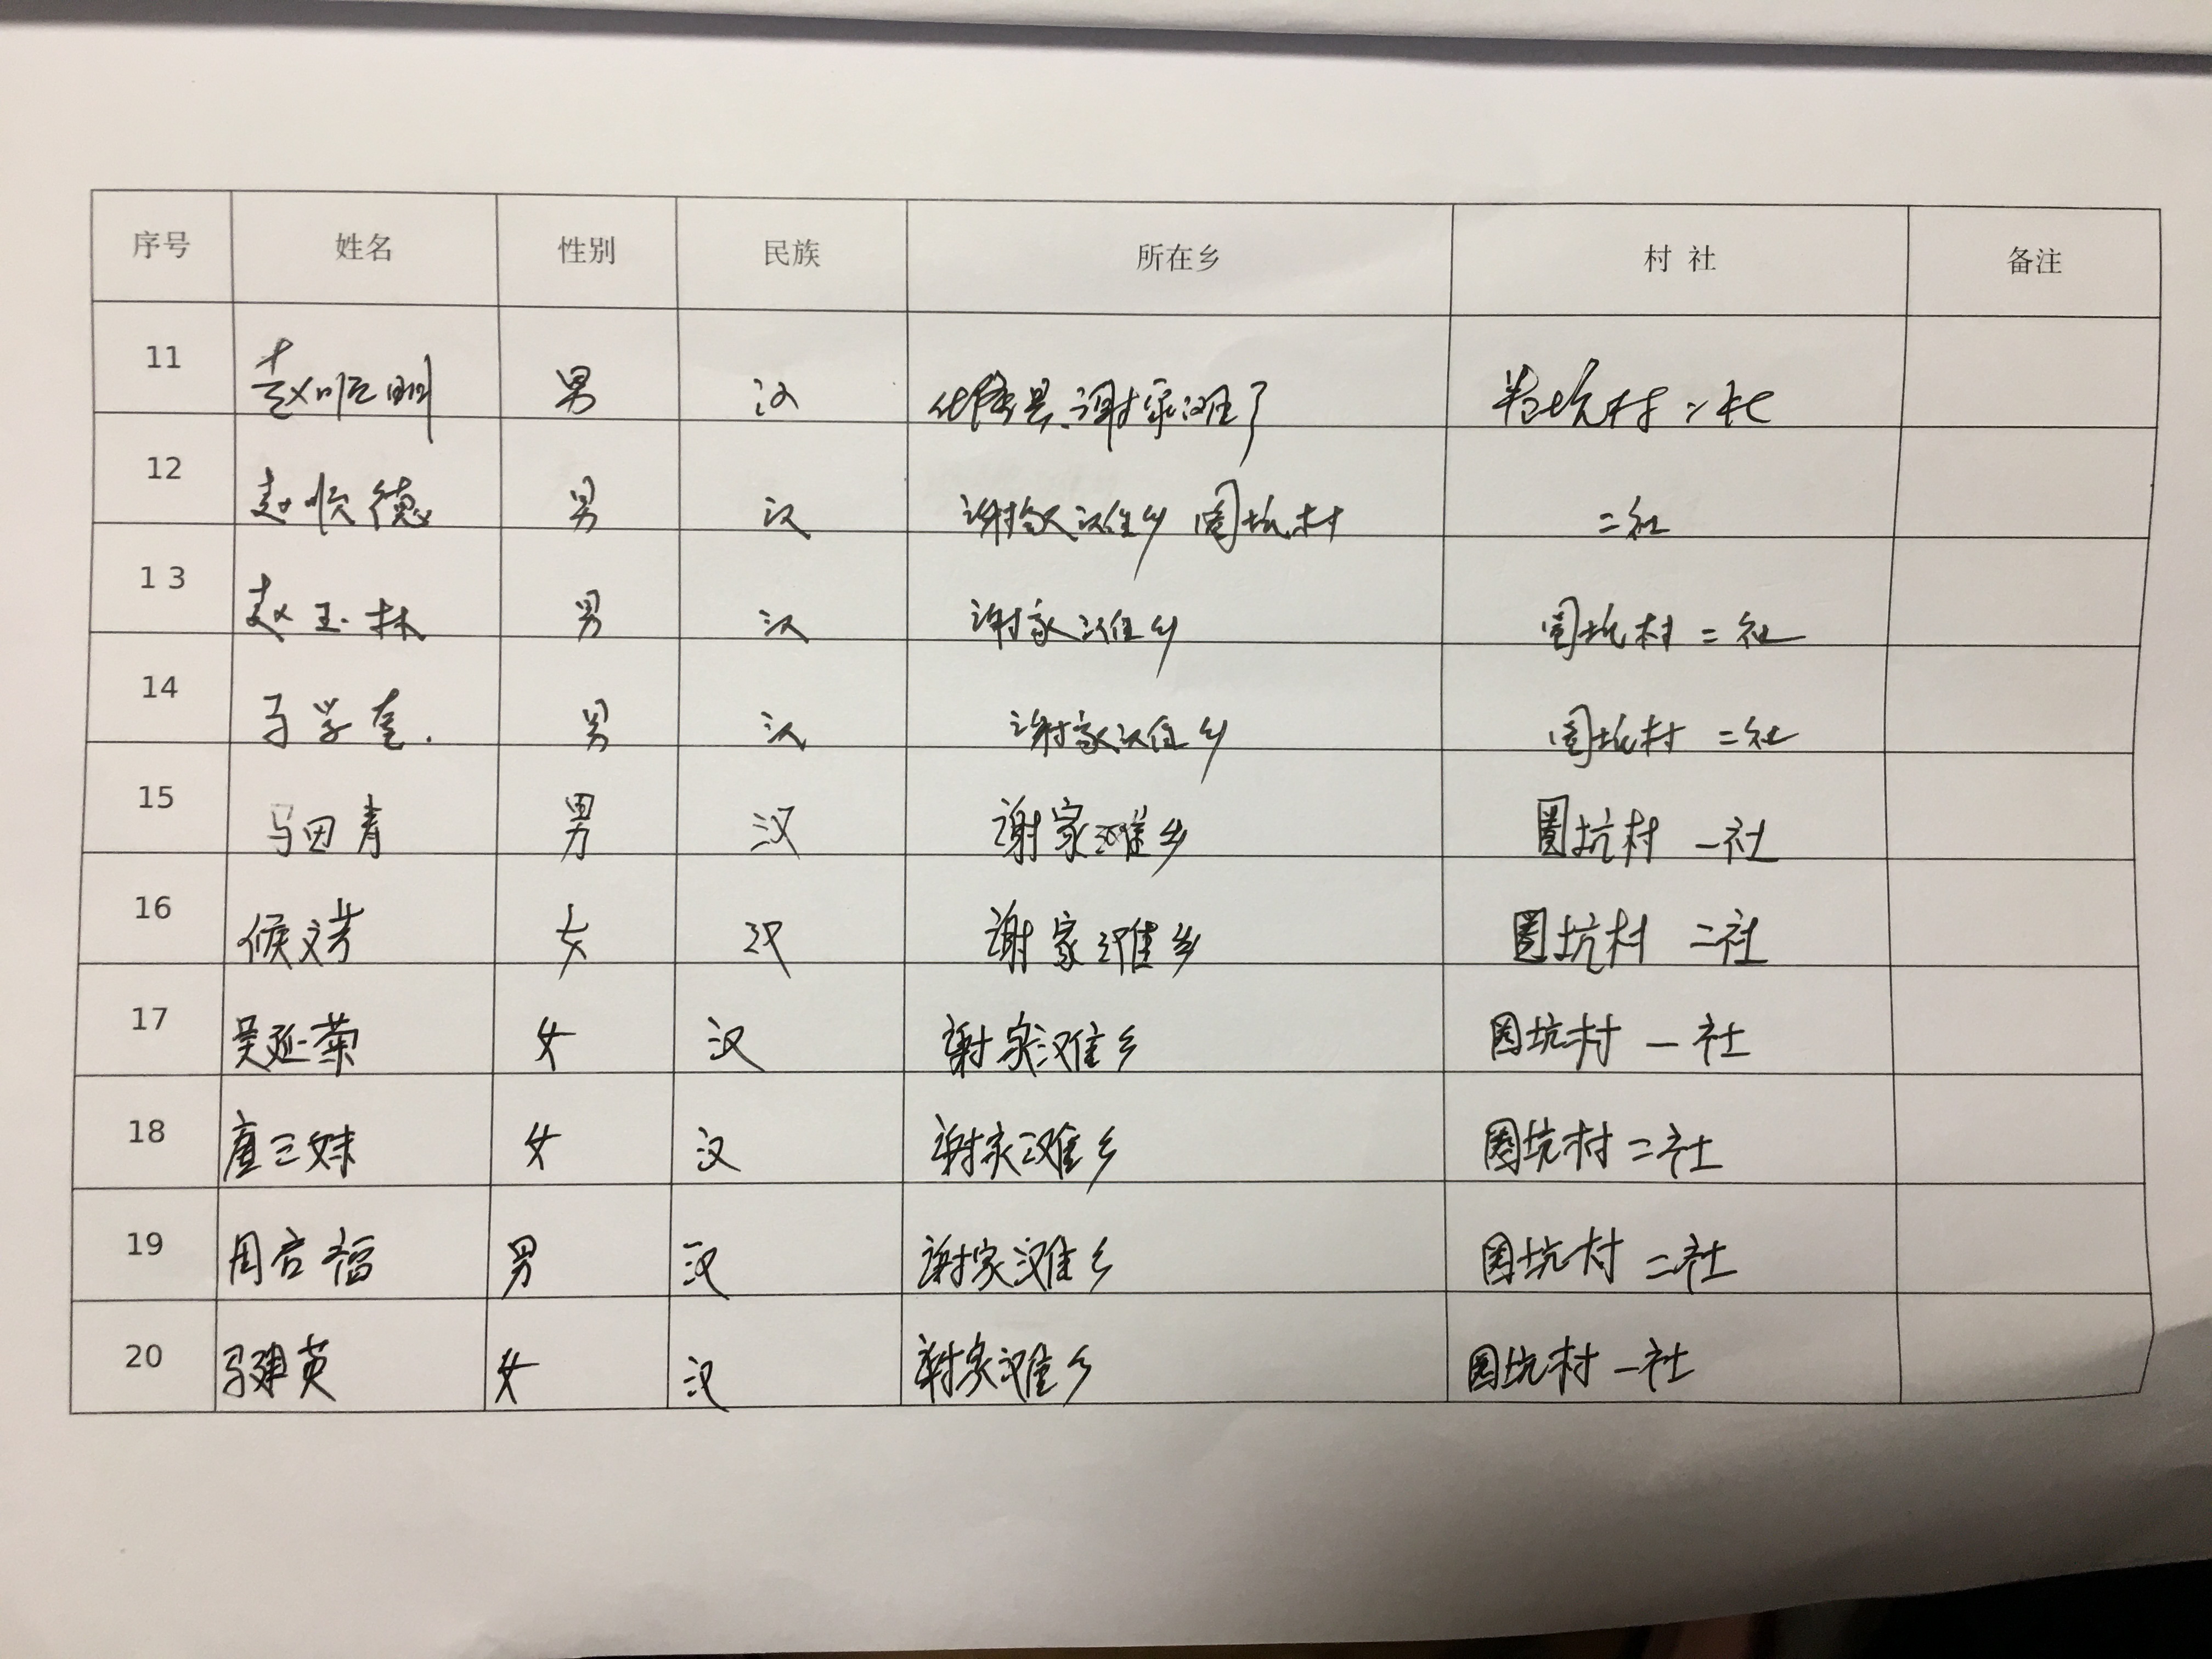 序号 姓名 性别 民族 所在乡 村 社 备注
11 赵顺明 男 汉 化隆县谢家滩乡 圈坑村二社
12 赵顺德 男 汉 谢家滩乡 圈坑村 二社
1 3 赵玉林 男 汉 谢家滩乡 圈坑村 二社
14 马学奎. 男 汉 谢家滩乡 圈坑村 二社
15 马田青 男 汉 谢家滩乡 圈坑村 一社
16 候文芳 女 汉 谢家滩乡 圈坑村 二社
17 吴延菊 女 汉 谢家滩乡 圈坑村 一社
18 唐三妹 女 汉 谢家滩乡 圈坑村 二社
19 周启福 男 汉 谢家滩乡 圈坑村 二社
20 马建英 女 汉 谢家滩乡 圈坑村 一社